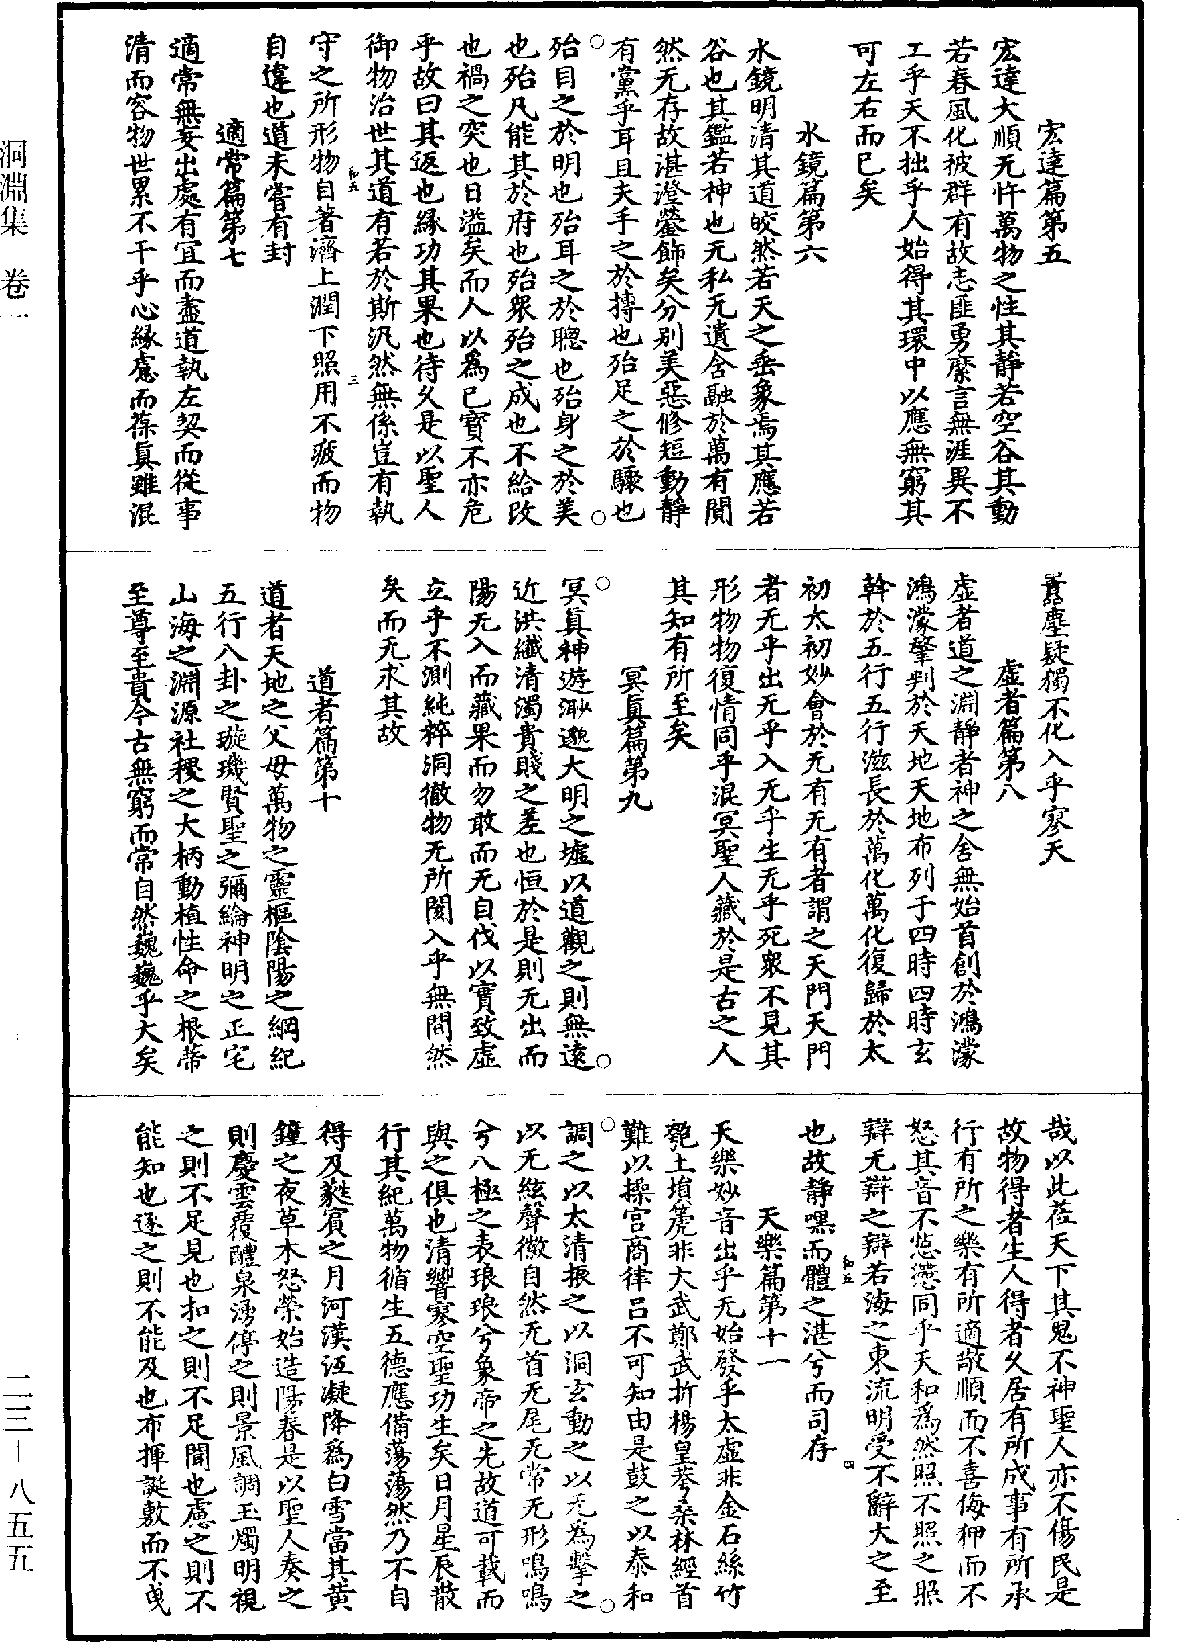 洞淵集　卷一
二三—八五五
宏達篇第五
宏達大順无忤萬物之性其靜若空谷其動
若春風化被群有故志匪勇縻言無涯異不
工乎天不拙乎人始得其環中以應無窮其
可左右而已矣
水鏡篇第六
水鏡明清其道皎然若天之垂象焉其應若
谷也其鑑若神也无私无遺含融於萬有閴
然无存故湛澄鎣飾矣分别美惡修短動靜
有黨乎耳且夫手之於摶也殆足之於驟也
殆目之於明也殆耳之於聰也殆身之於美
也殆凡能其於府也殆衆殆之成也不給改
也禍之突也日溢矣而人以爲已寳不亦危
乎故曰其返也緣功其果也待久是以聖人
御物治世其道有若於斯汎然無係豈有執
守之所形物自著濟上潤下照用不疲而物
自違也道未嘗有封
適常篇第七
適常無妄出處有宜而盡道執左契而從事
清而容物世累不干乎心緣慮而葆眞雖混
囂塵疑獨不化入乎寥天
虛者篇第八
虛者道之淵靜者神之舍無始首創於鴻濛
鴻濛肇判於天地天地布列于四時四時玄
幹於五行五行滋長於萬化萬化復歸於太
初太初妙會於无有无有者謂之天門天門
者无乎出无乎入无乎生无乎死衆不見其
形物物復情同乎混冥聖人藏於是古之人
其知有所至矣
冥眞篇第九
冥眞神遊渺邈大明之墟以道觀之則無遠
近洪纖清濁貴賤之差也恒於是則无出而
陽无入而藏果而勿敢而无自伐以實致虛
立乎不測純粹洞徹物无所閡入乎無間然
矣而无求其故
道者篇第十
道者天地之父母萬物之靈樞陰陽之綱紀
五行八卦之璇璣賢聖之彌綸神明之正宅
山海之淵源社稷之大柄動植性命之根蒂
至尊至貴今古無窮而常自然巍巍乎大矣
哉以此莅天下其鬼不神聖人亦不傷民是
故物得者生人得者久居有所成事有所承
行有所之樂有所適敬順而不喜侮狎而不
怒其音不惉懘同乎天和爲然照不照之照
辯无辯之辯若海之東流明受不辭大之至
也故靜嘿而體之湛兮而司存
天樂篇第十一
天樂妙音出乎无始發乎太虛非金石絲竹
匏土塤箎非大武鄭武折楊皇荂桑林經首
難以操宫商律吕不可知由是鼓之以泰和
調之以太清振之以洞玄動之以无為擊之
以无絃聲徵自然无首无尾无常无形鳴鳴
兮八極之表琅琅兮象帝之先故道可載而
與之俱也清響寥空聖功生矣日月星辰散
行其紀萬物循生五德應備蕩蕩然乃不自
得及蕤賓之月河漢沍凝降爲白雪當其黄
鐘之夜草木怒榮始造陽春是以聖人奏之
則慶雲覆醴泉湧停之則景風調玉燭明視
之則不足見也扣之則不足聞也慮之則不
能知也逐之則不能及也布揮誕敷而不曳